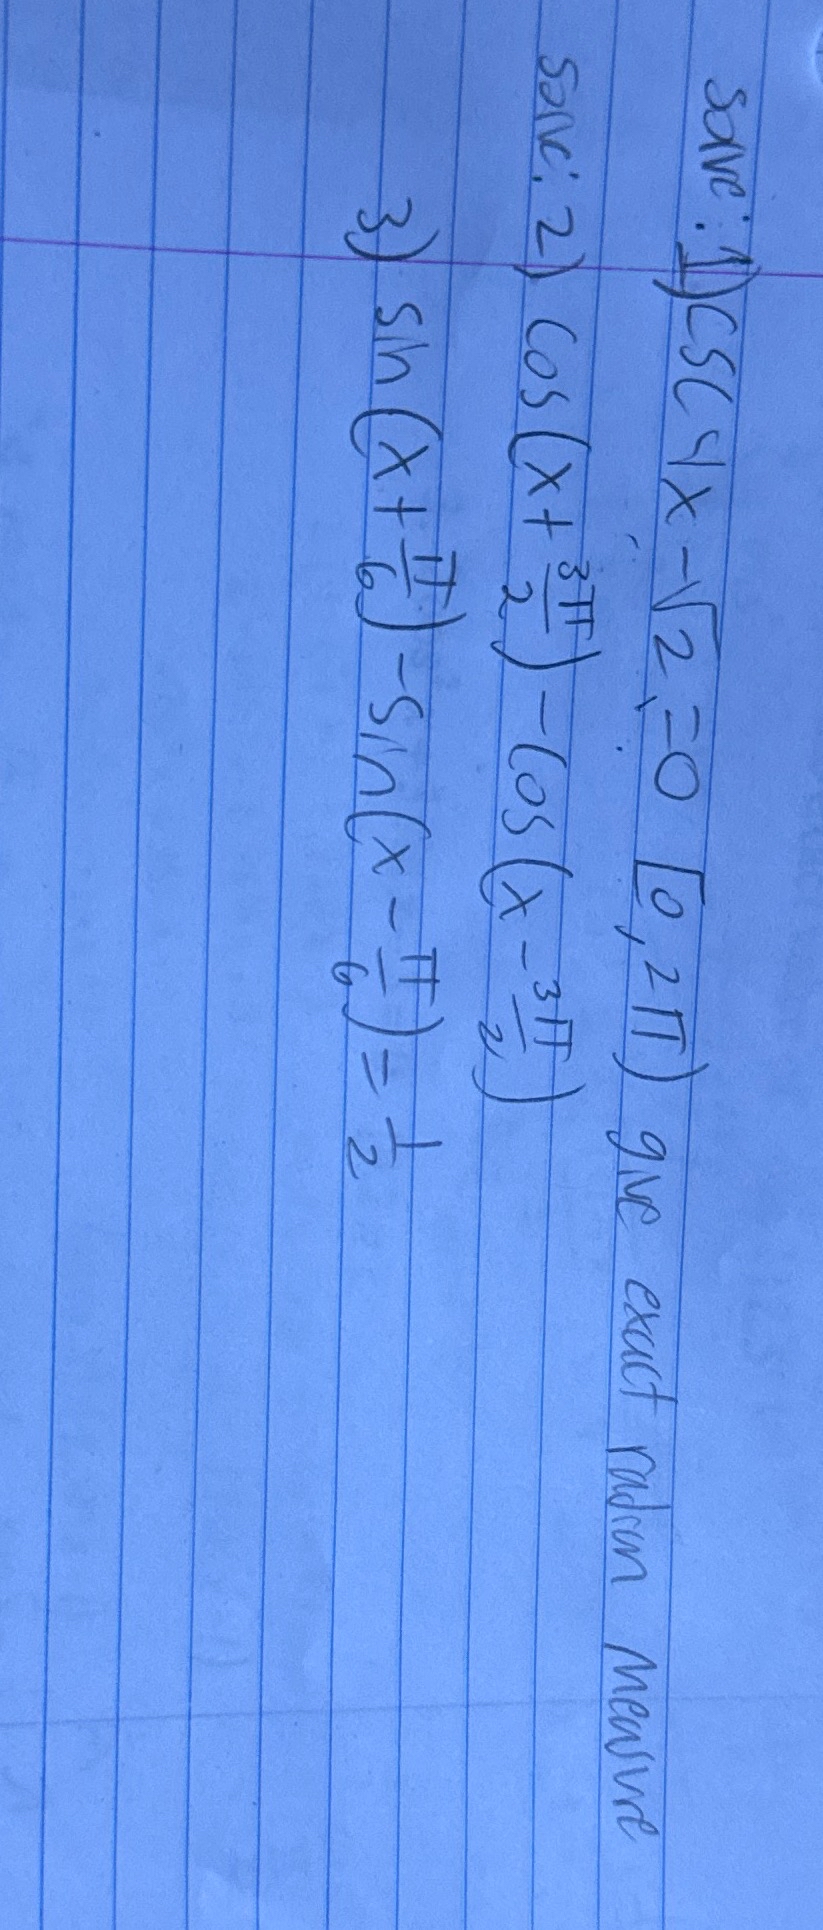 Solve: 1) csc 4x - √2 = 0 [0, 2π) give exact radian measure
Solve: 2) cos(x + 3π/2) - cos(x - 3π/2)
3) sin(x + π/6) - sin(x - π/6) = 1/2